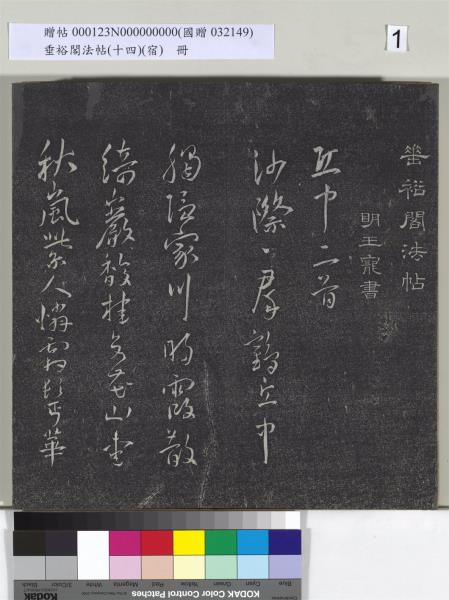 贈帖 000123N000000000(國贈 032149)
垂裕閣法帖(十四)(宿) 冊
1
垂裕閣法帖
明王寵書
丘中二首
沙際一群鷗丘中
獨隱家川明霞散
綺巖馥桂多花山
秋嵐紫人憐霜
華
Blue
Cyan
Green
Yellow
Red
Magenta
White
3/Color
Black
KODAK Color Control Patches